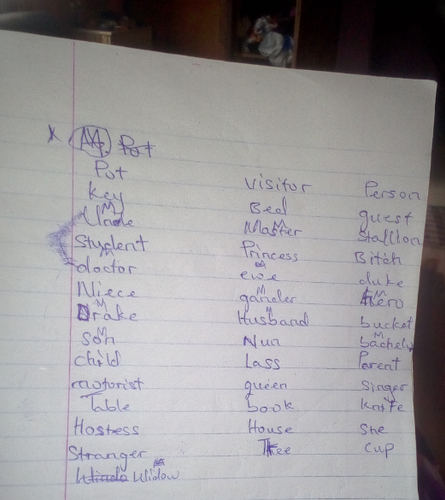 X A4. Pot
Pot
Key
Uncle
Student
doctor
Niece
Drake
Son
child
motorist
Table
Hostess
Stranger
Widow
visitor
Bed
Master
Princess
ewe
gander
Husband
Nun
Lass
queen
book
House
Tree
Person
guest
Stallion
Bitch
duke
Hero
bucket
bachelor
Parent
singer
knife
She
cup